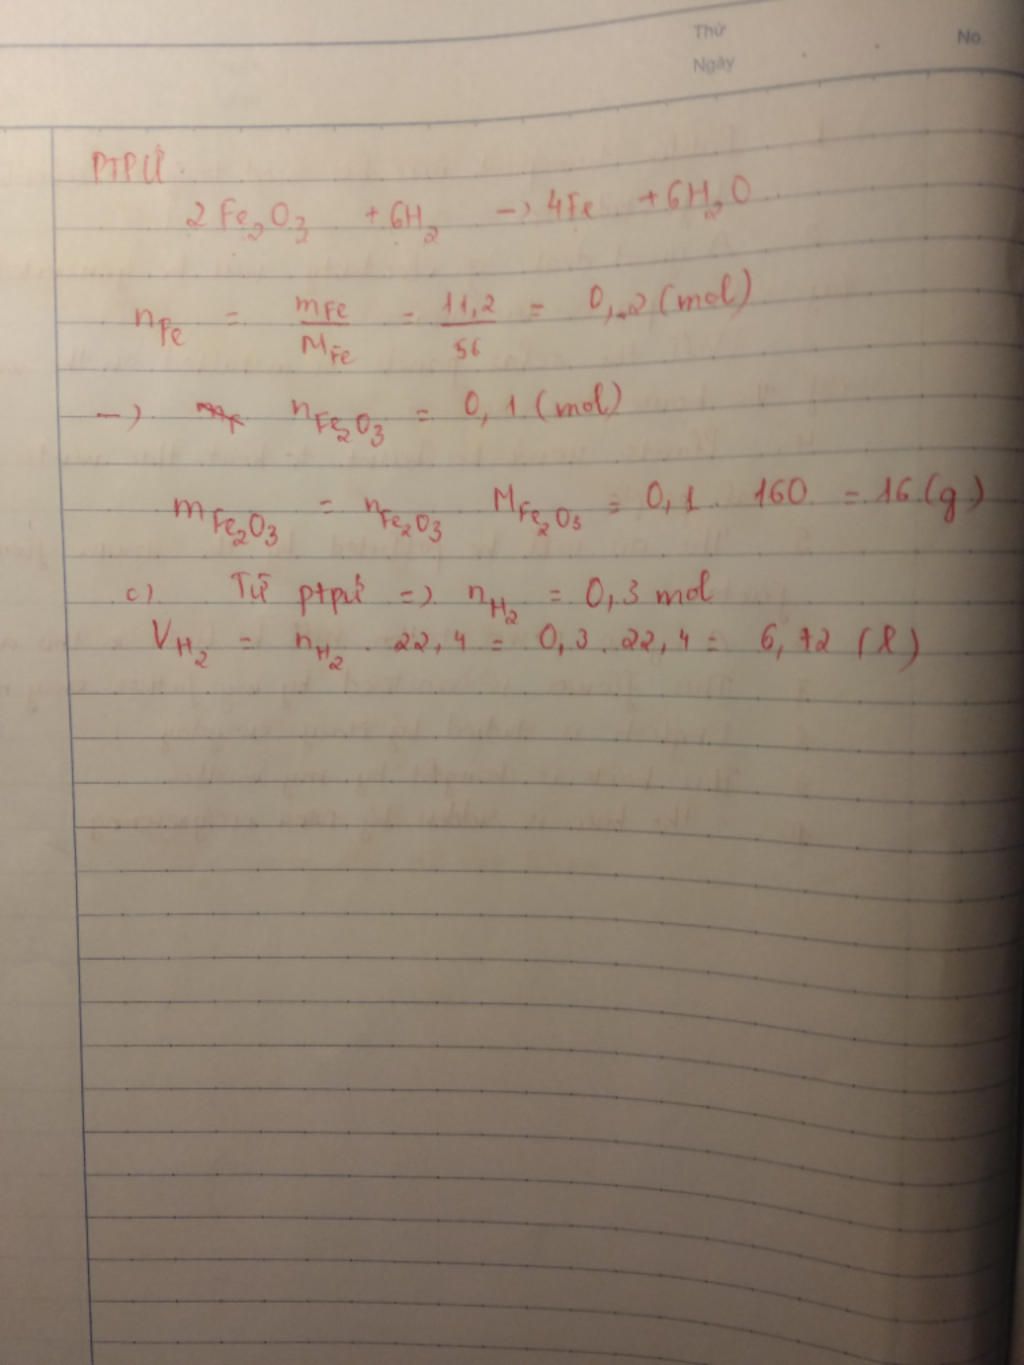 Thứ
Ngày
No.
PTPƯ
2 Fe₂O₃ + 6H₂ → 4Fe + 6H₂O
n_Fe = m_Fe / M_Fe = 11,2 / 56 = 0,2 (mol)
→ n_Fe₂O₃ = 0,1 (mol)
m_Fe₂O₃ = n_Fe₂O₃ M_Fe₂O₃ = 0,1 . 160 = 16 (g)
c) Từ ptpứ => n_H₂ = 0,3 mol
V_H₂ = n_H₂ . 22,4 = 0,3 . 22,4 = 6,72 (l)